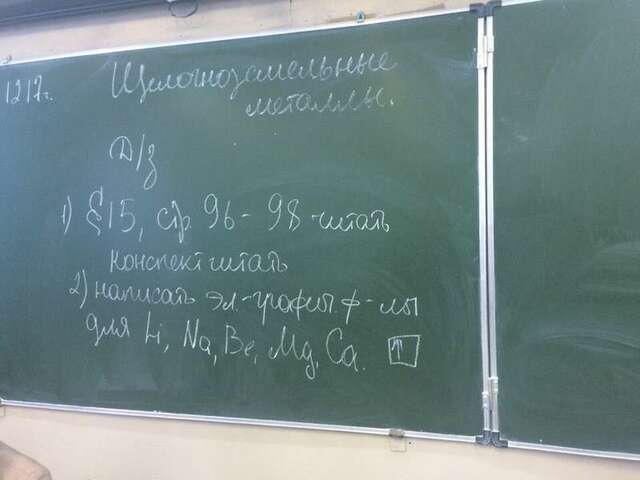 1217г. Щелочноземельные
металлы.
Д/з
1) §15, стр. 96-98-читать
конспект читать
2) написать эл.-график. ф-лы
для Li, Na, Be, Mg, Ca. ↑